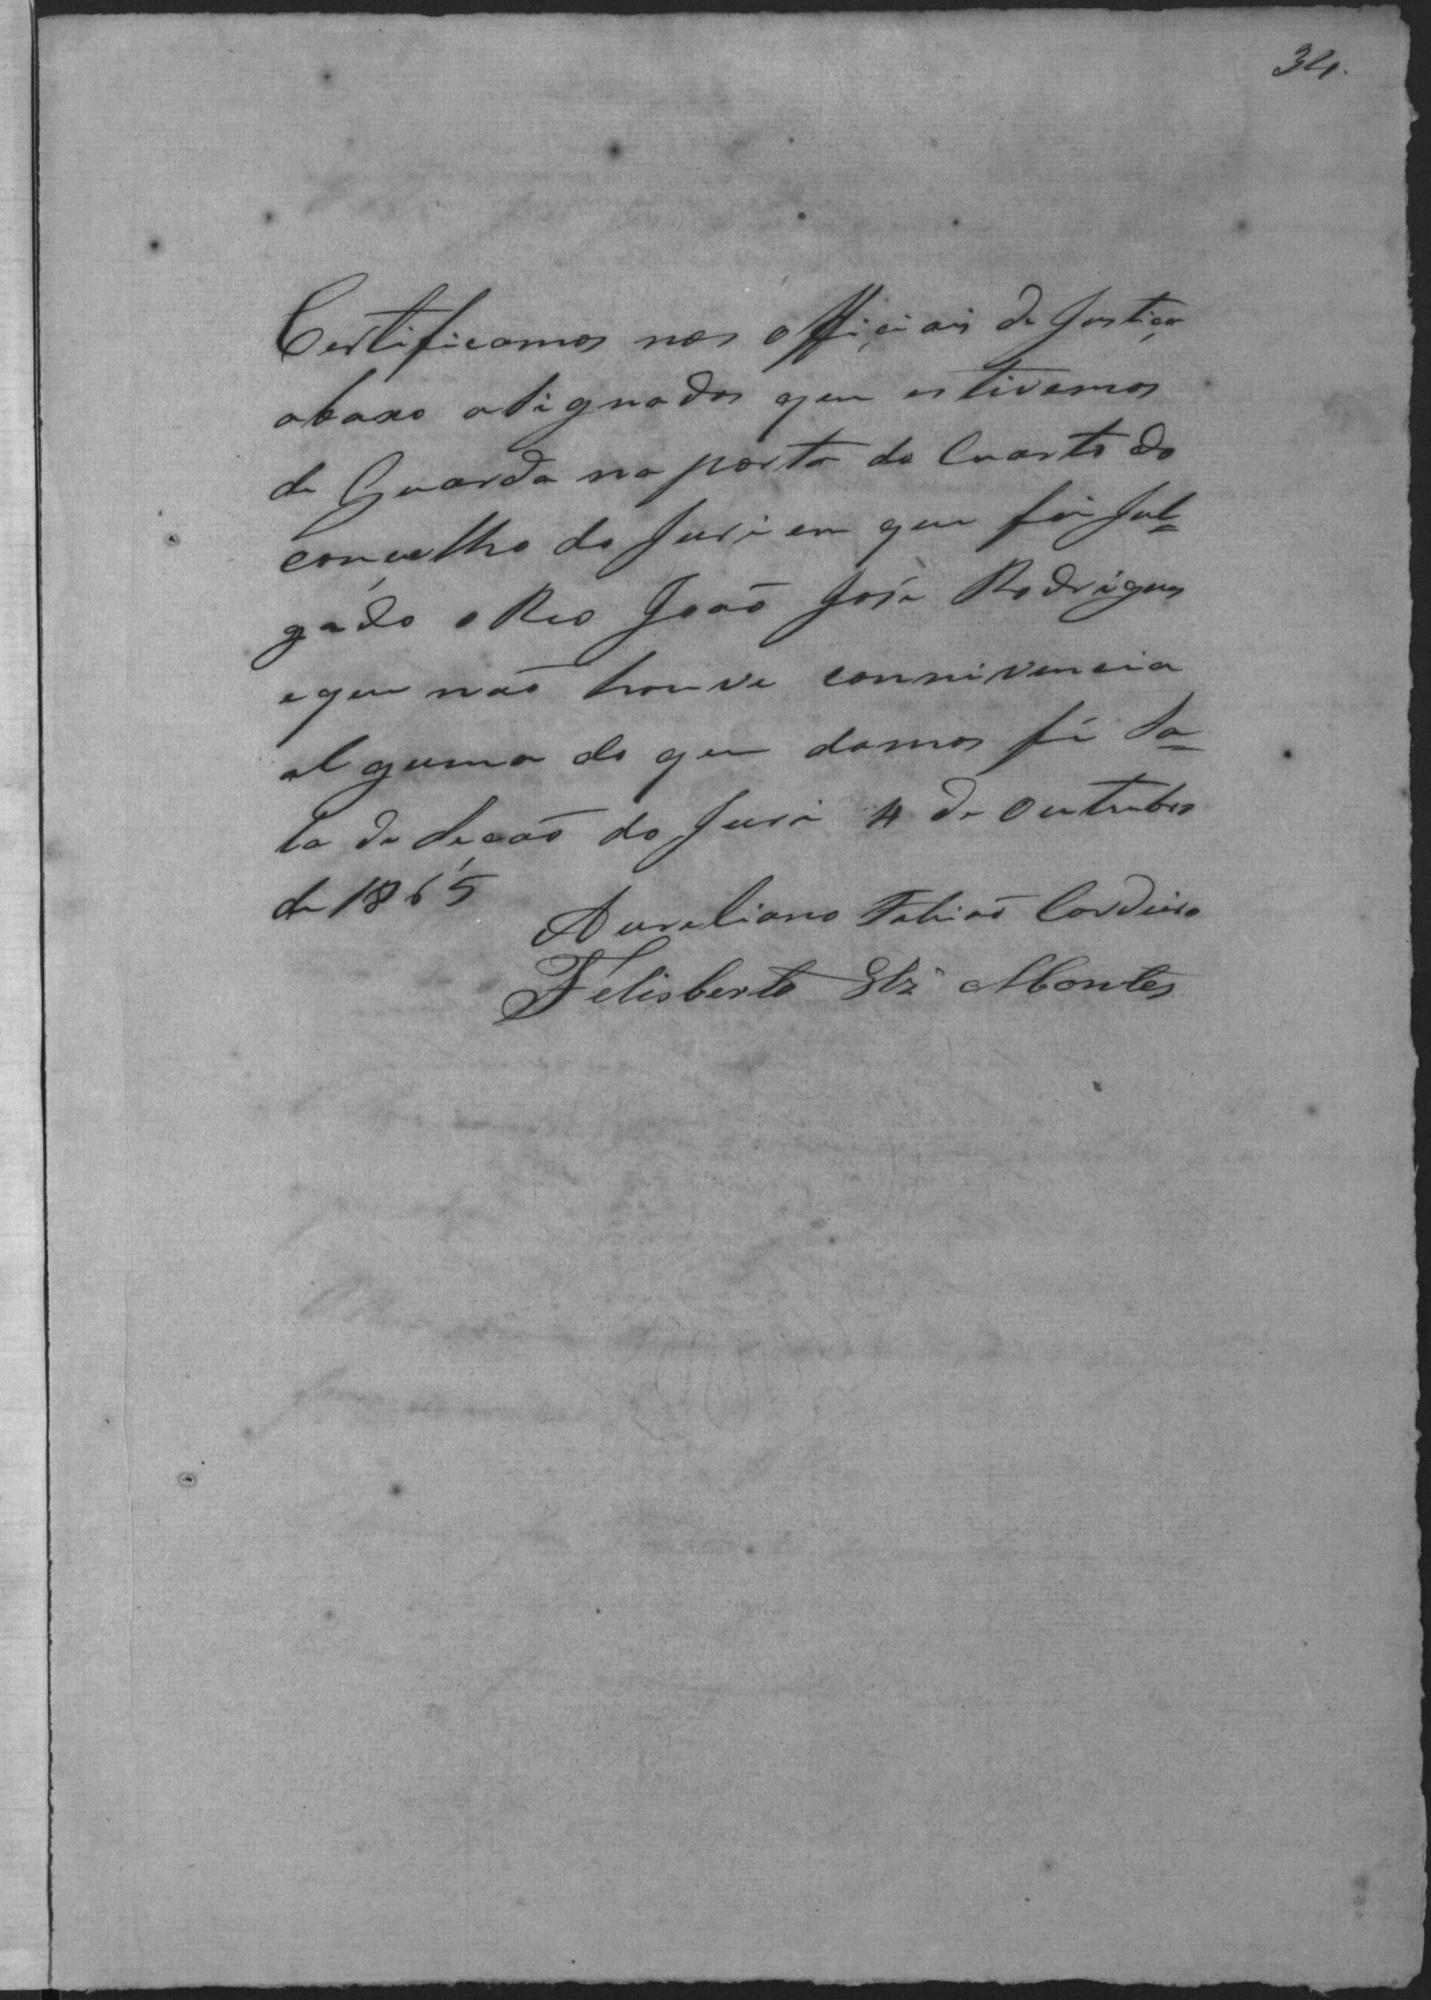 34.
Certificamos nos officiais de Justiça
abaxo asignados que estivemos
de Guarda na porta do Cuarto do
concelho do Juri em que foi Jul=
gado o Reo João José Rodrigues
e que não houve connivencia
alguma do que damos fé Sa=
la de Seção do Juri 4 de Outubro
de 1865
Aureliano Fabião Cordeiro
Felisberto Montes